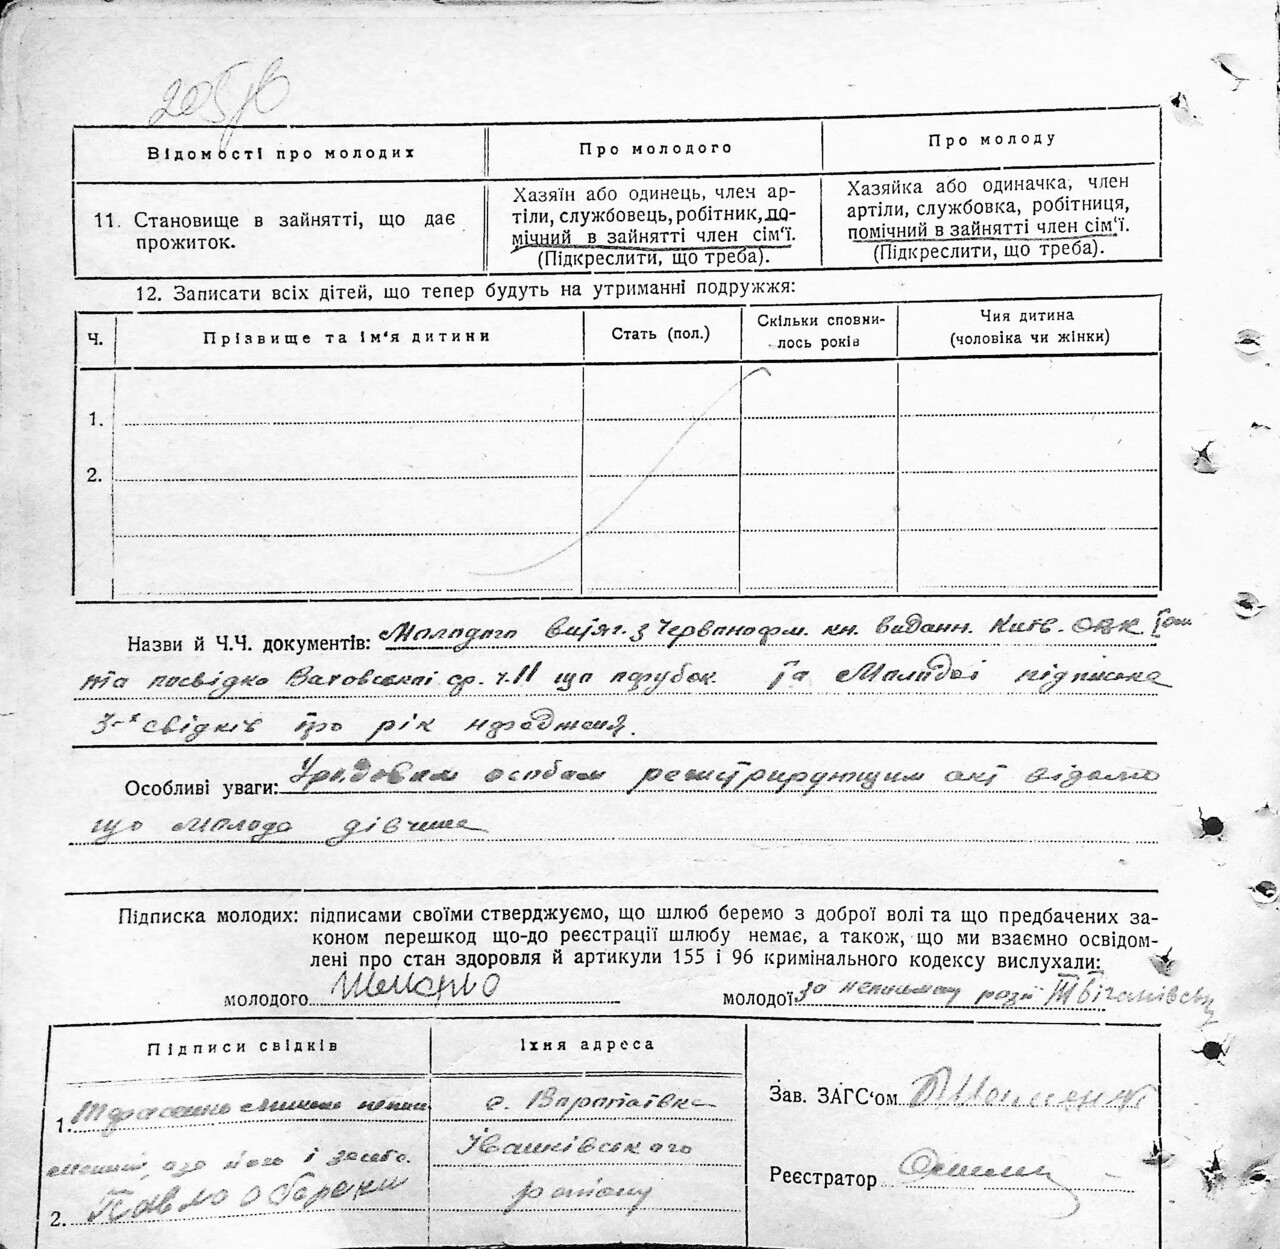 205 зв
Відомості про молодих
Про молодого
Про молоду
11. Становище в зайнятті, що дає
прожиток.
Хазяїн або одинець, член ар-
тілі, службовець, робітник, по-
мічний в зайнятті член сім'ї.
(Підкреслити, що треба).
Хазяйка або одиначка, член
артілі, службовка, робітниця,
помічний в зайнятті член сім'ї.
(Підкреслити, що треба).
12. Записати всіх дітей, що тепер будуть на утриманні подружжя:
Ч.
Прізвище та ім'я дитини
Стать (пол.)
Скільки сповни-
лось років
Чия дитина
(чоловіка чи жінки)
1.
2.
Назви й Ч.Ч. документів: Молодого витяг. з Червоноарм. кн. виданн. Київ. ОВК
та посвідка ср. ч. 11 що парубок та Молодої підписка
3-х свідків про рік народження.
Особливі уваги: Урядовим особам регистрирующим акт відомо
що молода дівчина
Підписка молодих: підписами своїми стверджуємо, що шлюб беремо з доброї волі та що предбачених за-
коном перешкод що-до реєстрації шлюбу немає, а також, що ми взаємно освідом-
лені про стан здоровля й артикули 155 і 96 кримінального кодексу вислухали:
молодого
молодої за неписьмену
Підписи свідків
Їхня адреса
1. Тарасенко
с. Варпаївка
Іванківського
району
2. Павло
Зав. ЗАГС'ом
Реєстратор